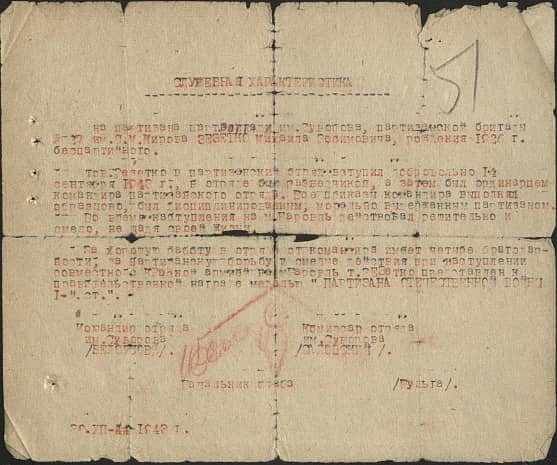 СЛУЖЕБНАЯ ХАРАКТЕРИСТИКА
51
на партизана им.Суворова, партизанской бригады
№ 27 им.С.М.Кирова ЗЕЗЕТКО Михаила рождения 1926 г.
беспартийного.
тов. в партизанский отряд вступил добровольно 14
сентября 1943 г., в отряде был разведчиком, а затем был ординарцем
командира партизанского отряда. Все приказы командира выполнял
образцово, был дисциплинированным, морально выдержанным партизаном.
Во время наступления на м.Наровль действовал решительно и
смело, не щадя своей жизни.
За хорошую работу в отряде от командира имеет четыре благодар-
ности, за партизанскую борьбу и смелые действия при наступлении
совместно с Красной армией на м.Наровль т. представлен к
правительственной награде медалью " ПАРТИЗАНА ОТЕЧЕСТВЕННОЙ ВОЙНЫ
I-й ст.".
Командир отряда Комиссар отряда
им.Суворова им.Суворова
Начальник штаба /Кульга/.
30.XII-44 1943 г.